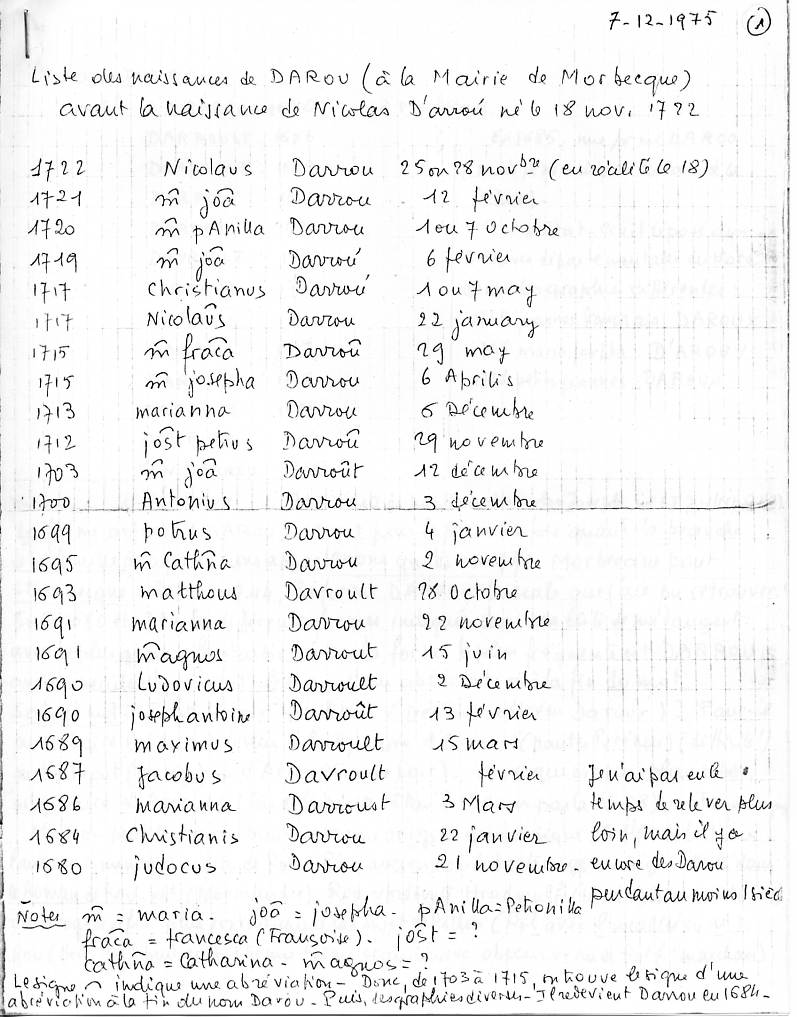 7-12-1975 ①
Liste des naissances de DAROU (à la Mairie de Morbecque)
avant la naissance de Nicolas D'arroú né le 18 nov. 1722
1722 Nicolaus Darrou 25 ou 28 novbre (en réalité le 18)
1721 m̂ joâ Darrou 12 février
1720 m̂ pAnilla Darrou 1 ou 7 Octobre
1719 m̂ joâ Darroú 6 février
1717 Christianus Darroú 1 ou 7 may
1717 Nicolaûs Darrou 22 january
1715 m̂ frâca Darroû 29 may
1715 m̂ josepha Darrou 6 Aprilis
1713 marianna Darrou 6 Décembre
1712 jôst petrus Darroû 29 novembre
1703 m̂ joâ Darroût 12 décembre
1700 Antonius Darrou 3 décembre
1699 petrus Darrou 4 janvier
1695 m̂ Cathn̂a Darrou 2 novembre
1693 mattheus Davroult 28 Octobre
1691 marianna Darrou 22 novembre
1691 m̂agnos Darrout 15 juin
1690 Ludovicus Darroult 2 Décembre
1690 joseph antoine Darroût 13 février
1689 maximus Darroult 15 mars
1687 Jacobus Davroult février Je n'ai pas eu le
1686 marianna Darroust 3 Mars temps de relever plus
1684 Christianis Darrou 22 janvier loin, mais il y a
1680 judocus Darrou 21 novembre. encore des Darou
pendant au moins 1 siècl
Notes m̂ = maria. joâ = josepha. pAnilla = Petronilla
frâca = francesca (Françoise). jôst = ?
Cathn̂a = Catharina. m̂agnos = ?
Le signe ⌢ indique une abréviation - Donc, de 1703 à 1715, on trouve le signe d'une
abréviation à la fin du nom Darou. Puis, des graphies diverses - Il redevient Darrou en 1684-